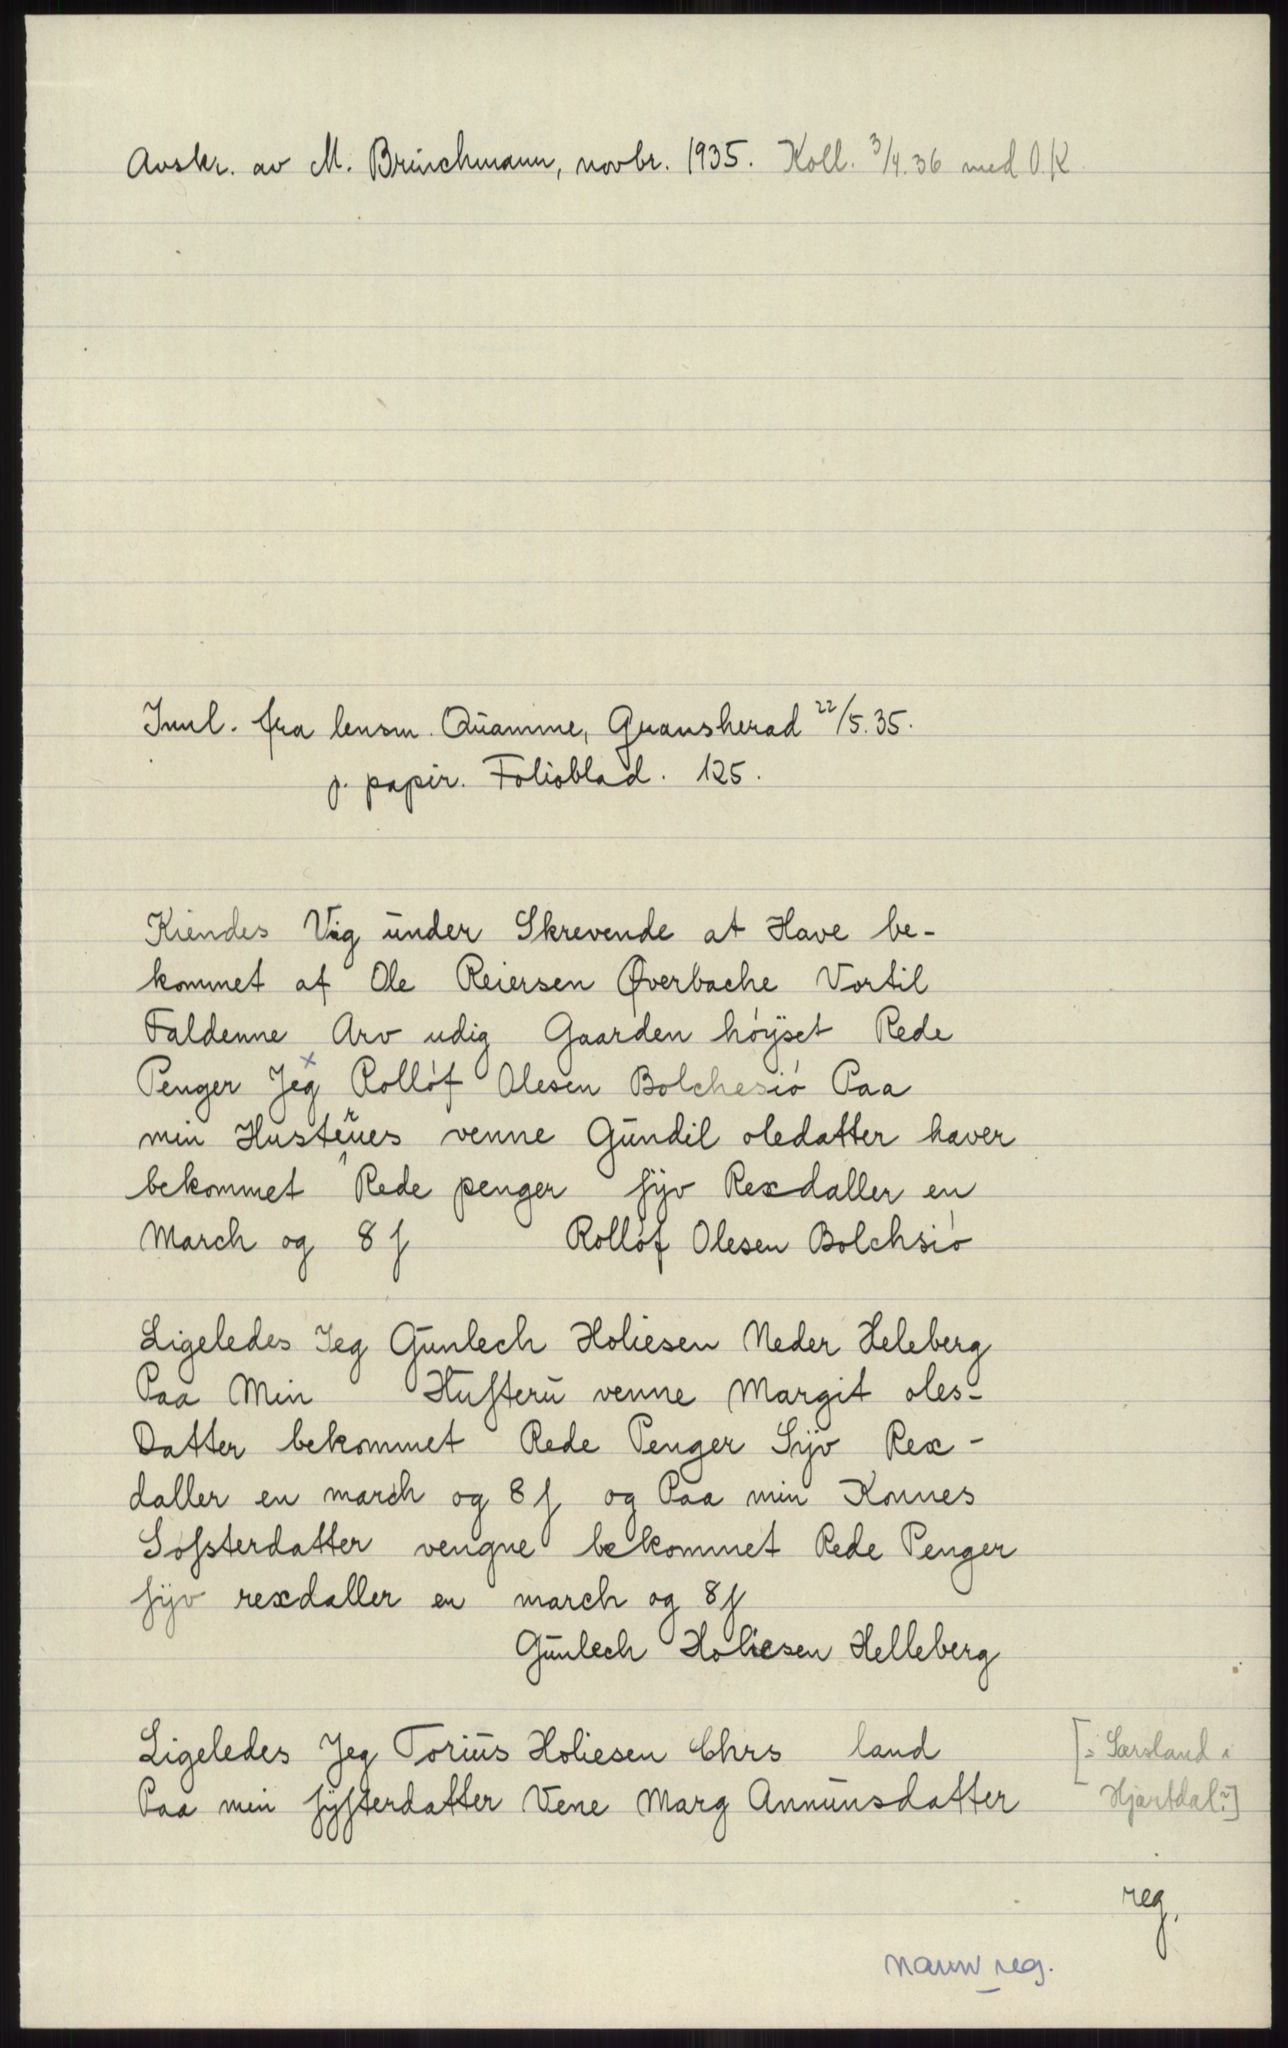 Avskr. av M. Brinchmann, novbr. 1935. Koll. 3/4.36 med O.K.
Innl. fra lensm. Quamme, Gransherad 22/5.35.
p. papir. Folioblad. 125.
Kiendes Vig under Skrevende at Have be-
kommet af Ole Reiersen Øverbache Vortil
Faldenne Arv udig Gaarden höÿset Rede
Penger Jeg x Rollóf Olesen Bolchesió Paa
min Husterues venne Gundil oledatter haver
bekommet Rede penger sÿv Rexdaller en
March og 8 ſ Rollóf Olesen Bolchsió
Ligeledes Jeg Gunlech Holiesen Neder Heleberg
Paa Min Husteru venne Margit oles-
Datter bekommet Rede Penger Sÿv Rex-
daller en march og 8 ſ og Paa min Konnes
Sosterdatter vengne bekommet Rede Penger
sÿv rexdaller en march og 8 ſ
Gunlech Holiesen Helleberg
Ligeledes Jeg Torius Holiesen Chrs land [: Sørsland i
Paa min sÿsterdatter Vene Marg Annunsdatter Hjartdal?]
reg.
navnreg.